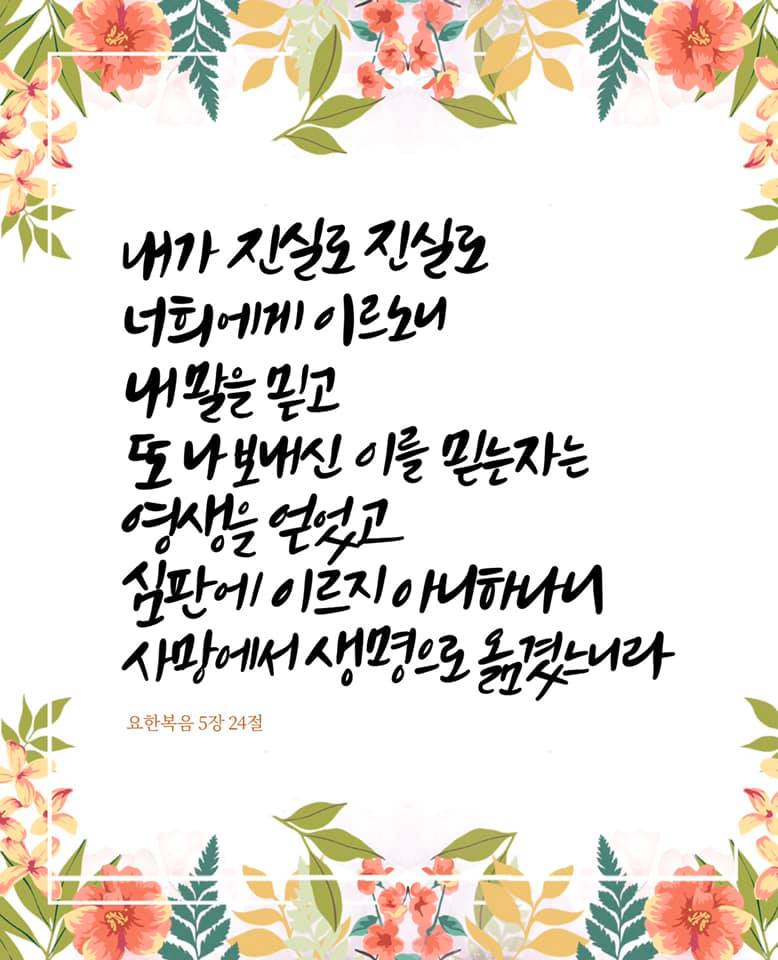 내가 진실로 진실로
너희에게 이르노니
내 말을 믿고
또 나 보내신 이를 믿는자는
영생을 얻었고
심판에 이르지 아니하나니
사망에서 생명으로 옮겼느니라
요한복음 5장 24절